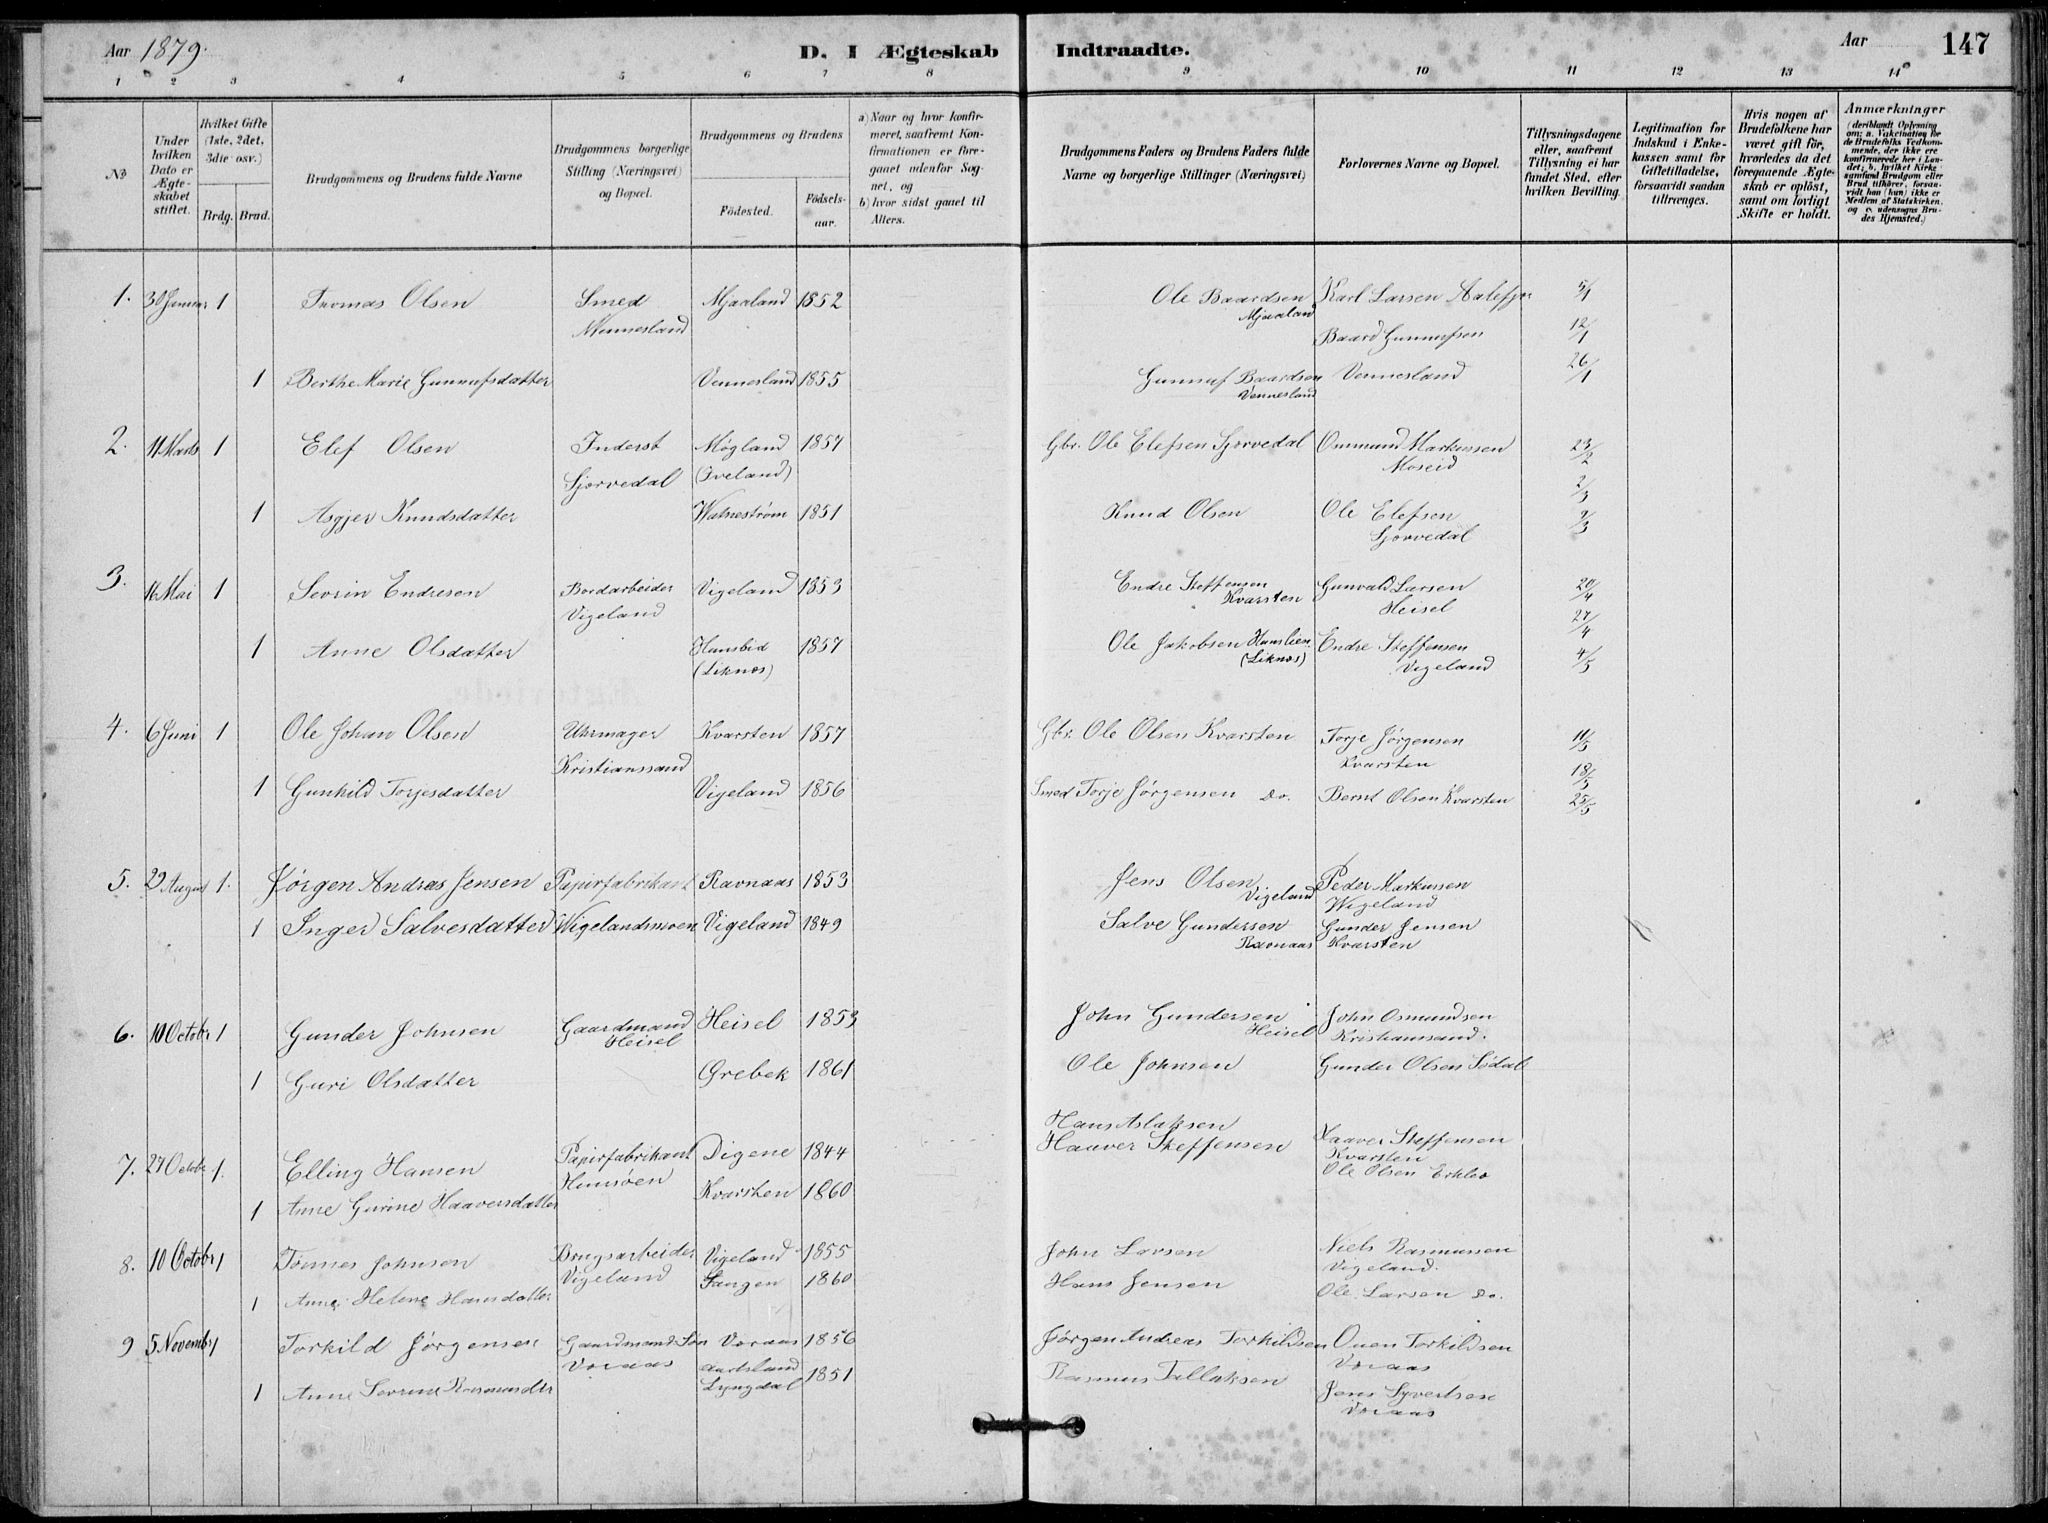 Aar 1879.
D. I Ægteskab Indtraadte.
Aar
147
1 2 3 4 5 6 7 8 9 10 11 12 13 14
No
Under hvilken Dato er Ægteskabet stiftet.
Hvilket Gifte (1ste, 2det, 3die osv.)
Brdg. Brud.
Brudgommens og Brudens fulde Navne
Brudgommens borgerlige Stilling (Næringsvei) og Bopæl.
Brudgommens og Brudens
Fødested.
Fødselsaar.
a) Naar og hvor konfirmeret, saafremt Konfirmationen er foregaaet udenfor Sognet, og
b) hvor sidst gaaet til Alters.
Brudgommens Faders og Brudens Faders fulde Navne og borgerlige Stillinger (Næringsvei)
Forlovernes Navne og Bopæl.
Tillysningsdagene eller, saafremt Tillysning ei har fundet Sted, efter hvilken Bevilling.
Legitimation for Indskud i Enkekassen samt for Giftetilladelse, forsaavidt saadan tiltrænges.
Hvis nogen af Brudefolkene har været gift før, hvorledes da det foregaaende Ægteskab er opløst, samt om lovligt Skifte er holdt.
Anmærkninger
(deriblandt Oplysning om: a. Vakcination for de Brudefolks Vedkommende, der ikke ere konfirmerede her i Landet; b. hvilket Kirkesamfund Brudgom eller Brud tilhører, forsaavidt han (hun) ikke er Medlem af Statskirken, og c. udensogns Brudes Hjemsted.)
1. 30 Januar 1 Thomas Olsen Smed Mjaaland 1852 Ole Baardsen Karl Larsen 5/1
Vennesland Mjaaland Baard Gunnufsen 12/1
1 Berthe Marie Gunnufsdatter Vennesland 1855 Gunnuf Baardsen Vennesland 26/1
Vennesland
2. 11 Marts 1 Elef Olsen Inderst Møgland 1857 Gbr. Ole Elefsen Sjorvedal Ommund Markussen 23/2
Sjorvedal (Iveland) Moseid 2/3
1 Asgjer Knudsdatter Watnestrøm 1851 Knud Olsen Ole Elefsen 9/3
Sjorvedal
3. 16 Mai 1 Sevrin Endresen Bordarbeider Vigeland 1853 Endre Steffensen Gunvald Larsen 20/4
Vigeland Kvarsten Heisel 27/4
1 Anne Olsdatter 1857 Ole Jakobsen Endre Steffensen 4/5
(Liknes) (Liknes) Vigeland
4. 6 Juni 1 Ole Johan Olsen Uhrmager Kvarsten 1857 Gbr. Ole Olsen Kvarsten Torje Jørgensen 11/5
Kristianssand Kvarsten 18/5
1 Gunhild Torjesdatter Vigeland 1856 Smed Torje Jørgensen Do. Bernt Olsen Kvarsten 25/5
5. 29 August 1. Jørgen Andreas Jensen Papirfabrikant Ravnaas 1853 Jens Olsen Peder Markussen
Vigeland Wigeland
1 Inger Salvesdatter Wigelandsmoen Vigeland 1849 Salve Gundersen Gunder Jensen
Ravnaas Kvarsten
6. 10 Octobr 1 Gunder Johnsen Gaardmand Heisel 1853 John Gundersen John Osmundsen
Heisel Heisel Kristianssand.
1 Guri Olsdatter Grebek 1861 Ole Johnsen Gunder Olsen Sødal
7. 27 Octobr. 1. Elling Hansen Papirfabrikant Digene 1844 Hans Aslaksen Haaver Steffensen
Hunsøen Haaver Steffensen Kvarsten
1 Anne Gurine Haaversdatter Kvarsten 1860 Ole Olsen Erklev
8. 10 Octobr 1 Tønnes Johnsen Brugsarbeider Vigeland 1855 John Larsen Niels Rasmussen
Vigeland Vigeland.
1 Anne Helene Hansdatter Tangen 1860 Hans Jensen Ole Larsen Do.
9 5 Novembr 1 Torkild Jørgensen Gaardmands Søn Voraas 1856 Jørgen Andreas Torkildsen Ouen Torkildsen
Voraas Voraas
1 Anne Severine Rasmusdtr Lyngdal 1851 Rasmus Tallaksen Jens Syvertsen
Voraas